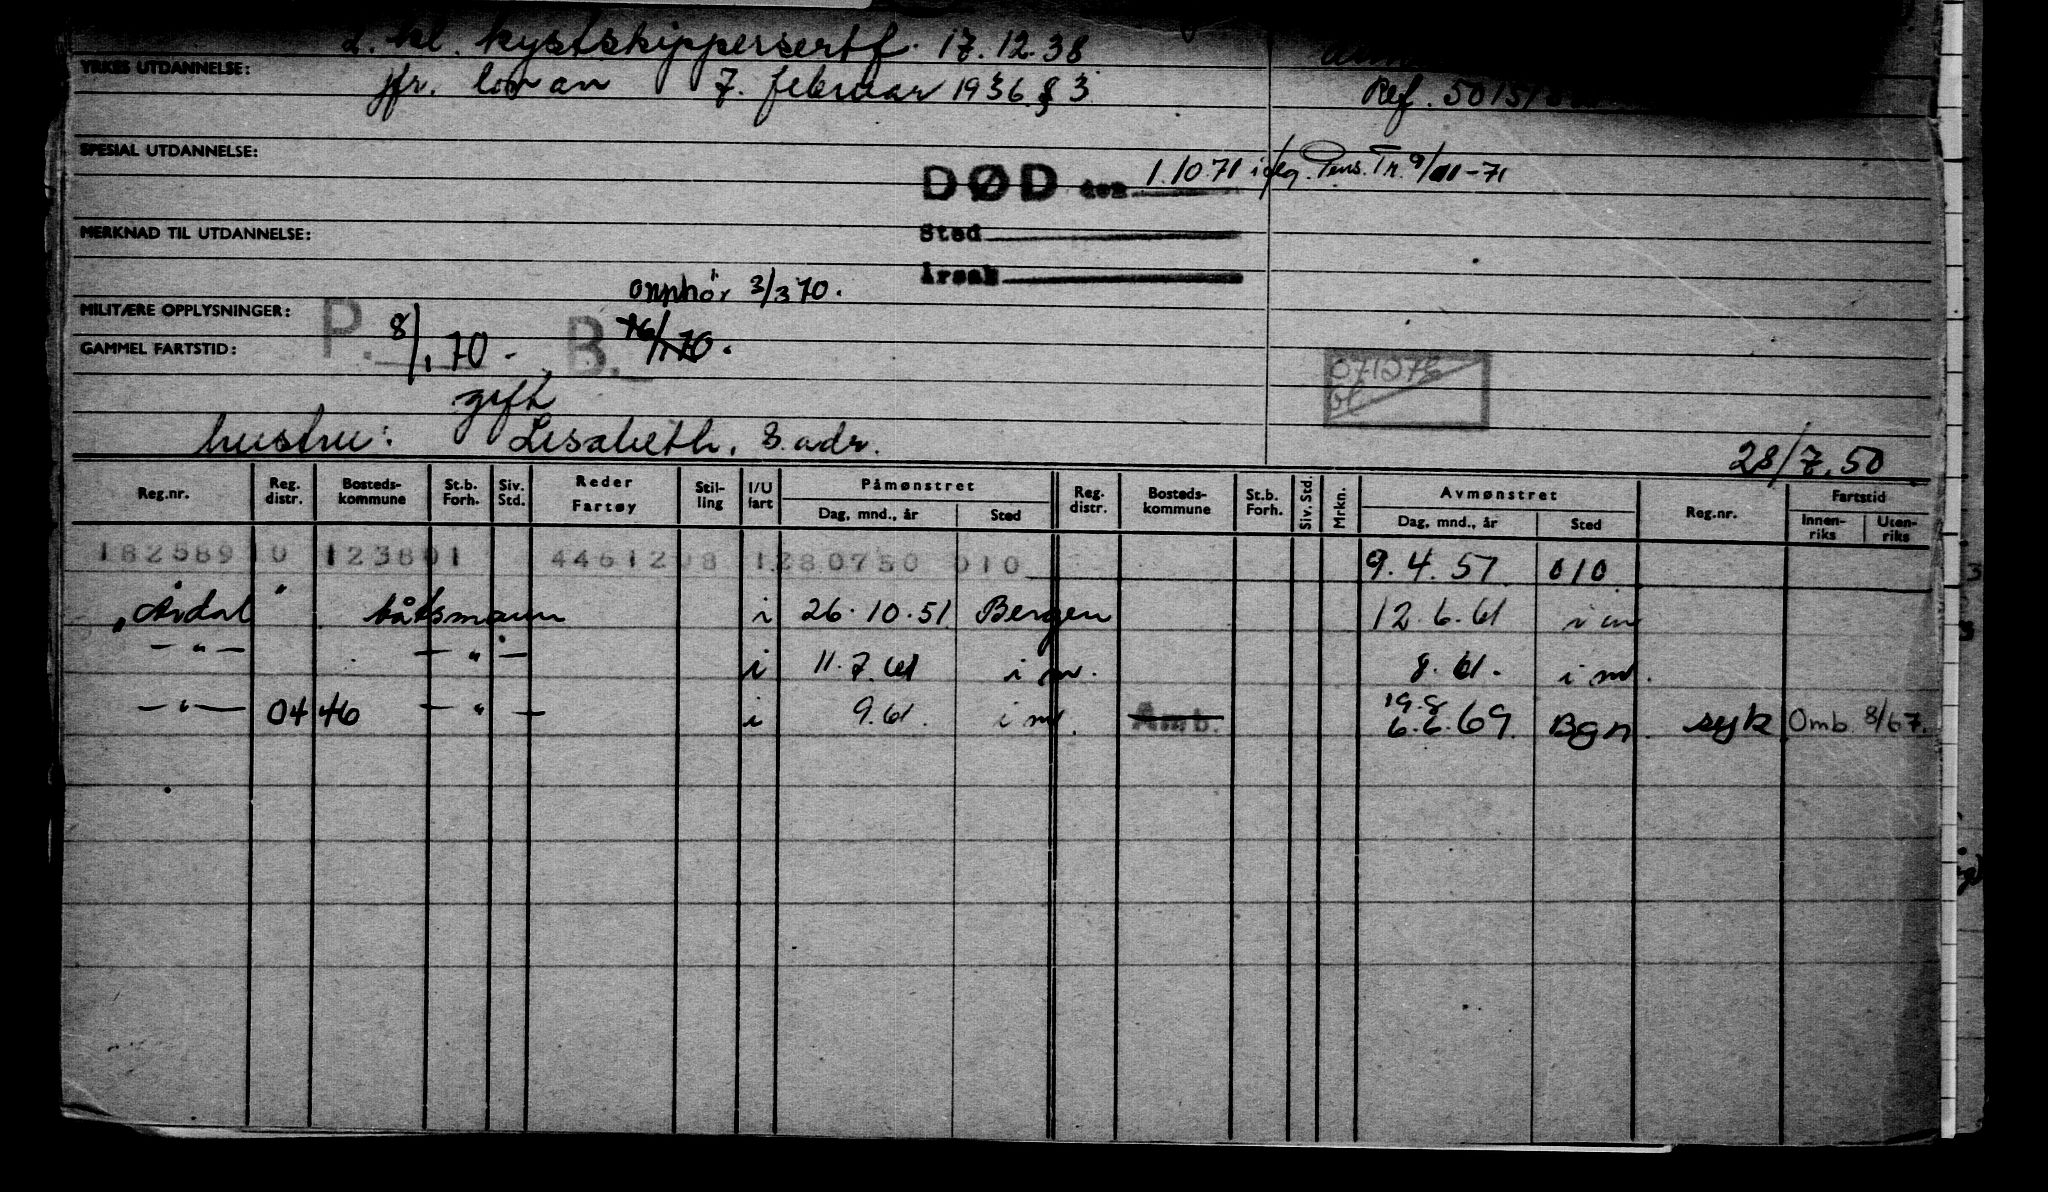 2. kl. kystskippersertf. 17.12.38
YRKES UTDANNELSE:
jfr. lov av 7. februar 1936 § 3
Ref. 50151
SPESIAL UTDANNELSE:
DØD den 1.10.71 iflg. Pens. Tr. 9/11-71
MERKNAD TIL UTDANNELSE:
Sted
Årsak
opphör 3/3 70.
MILITÆRE OPPLYSNINGER:
GAMMEL FARTSTID:
P. 8/1 70 - B. 16/1 70.
071076
gift
hustru: Lisabeth, s. adr.
28/7.50
Reg.nr. Reg. distr. Bosteds-kommune St.b. Forh. Siv. Std. Reder Fartøy Stil-ling I/U fart Påmønstret Dag, mnd., år Sted Reg. distr. Bosteds-kommune St.b. Forh. Siv. Std. Mrkn. Avmønstret Dag, mnd., år Sted Reg.nr. Fartstid Innen-riks Uten-riks
1825891 0 123801 4461208 1280750 010 9.4.51 010
"Årdal" båtsmann i 26.10.51 Bergen 12.6.61 i m
— " — — " — i 11.7.61 i m. 8.61. i m.
— " — 04 46 — " — i 9.61. i m. Amb. 19.8 6.6.69. Bgn. syk Omb. 8/67.